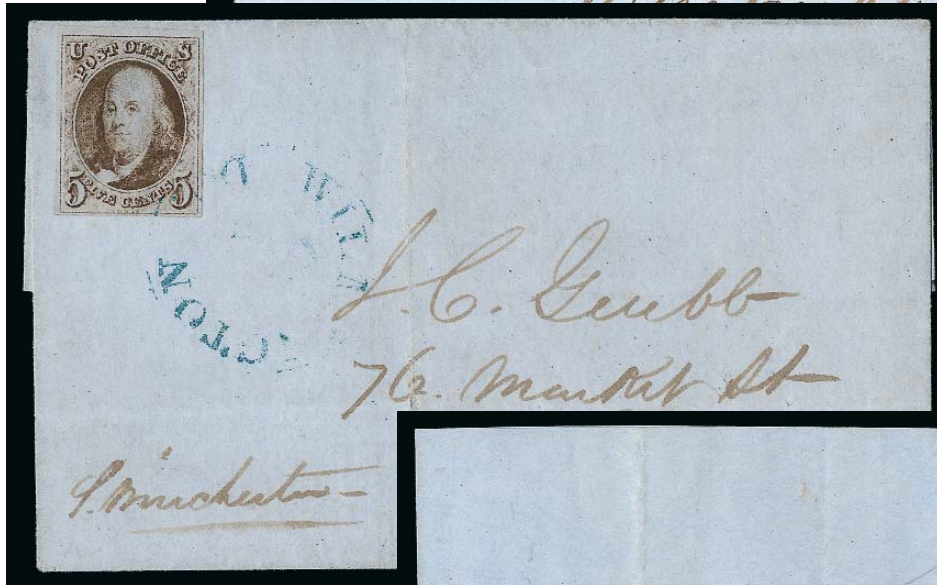 U S
POST OFFICE
5 FIVE CENTS 5
WILM
GTON
J. C. Grubb
76. Market St